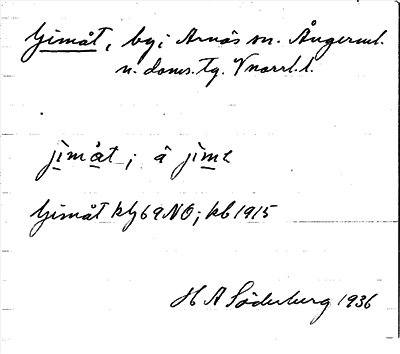 Gimåt, by i Arnäs sn. Ångerml.
n. doms. tg. Vnorrl. l.
jìmåt ; å jìmɛ
Gimåt kbl 69 NO; kb 1915
H A Söderberg 1936